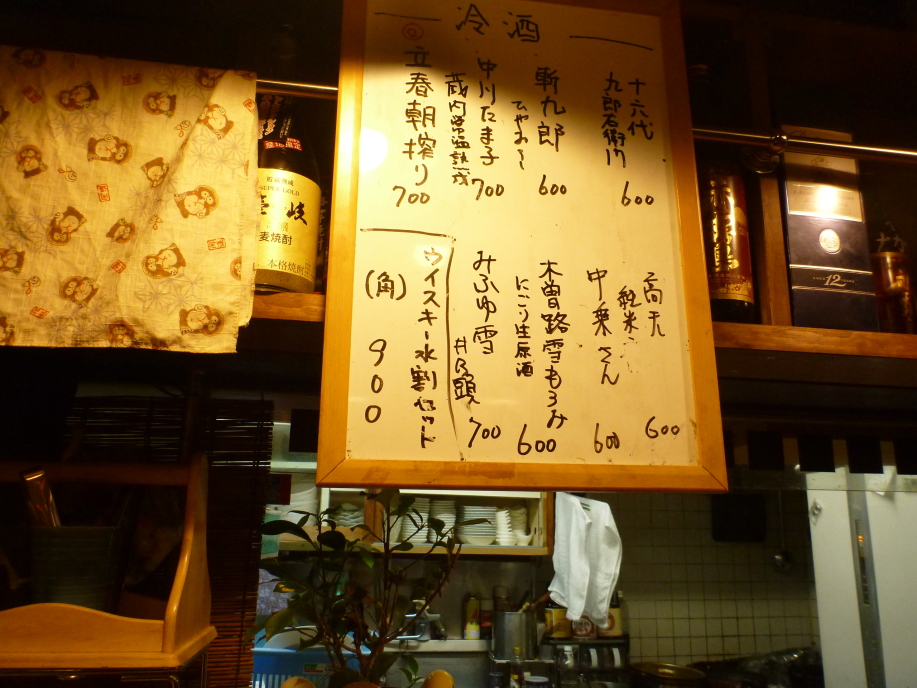 冷酒
十六代
九郎右衛門
600
斬九郎
ひやおろし
600
中川たま子
蔵内常温熟成
700
立春朝搾り
700
高天
純米
中乗さん
600
600
木曽路雪もろみ
にごり生原酒
600
みふゆ雪
井乃頭
700
ウイスキー水割セット
(角)
900
貯蔵熟成
SUPER GOLD
壱岐
麦焼酎
本格焼酎
12